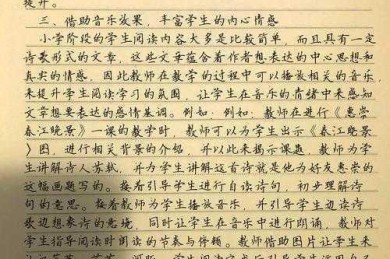 提升。
三、借助音乐效果，丰富学生的内心情感
小学阶段的学生阅读内容大多是比较简单，而且具有一定
诗歌形式的文章，这些文章蕴含着作者想表达的中心思想和
真实的情感，因此教师在教学的过程中可以播放相关的音乐
来提升学生阅读学习的氛围，让学生在音乐的情绪中来感知
文章想要表达的感情基调。例如：例如：教师在进行《惠崇
春江晓景》一课的教学时，教师可以为学生出示《春江晓景
》图，进行相关背景的介绍，并以此来揭示课题，教师为学
生讲解诗人苏轼，并为学生讲解这首诗就是他为好友惠崇的
这幅画题写的。接着引导学生进行自读诗句，初步理解诗
句的意思。接着教师为学生播放音乐，并引导学生边读诗
歌边想象诗的意境，同时让学生在音乐中进行朗诵，教师对
学生指导阅读时朗读的节奏与停顿。教师借助图片让学生来